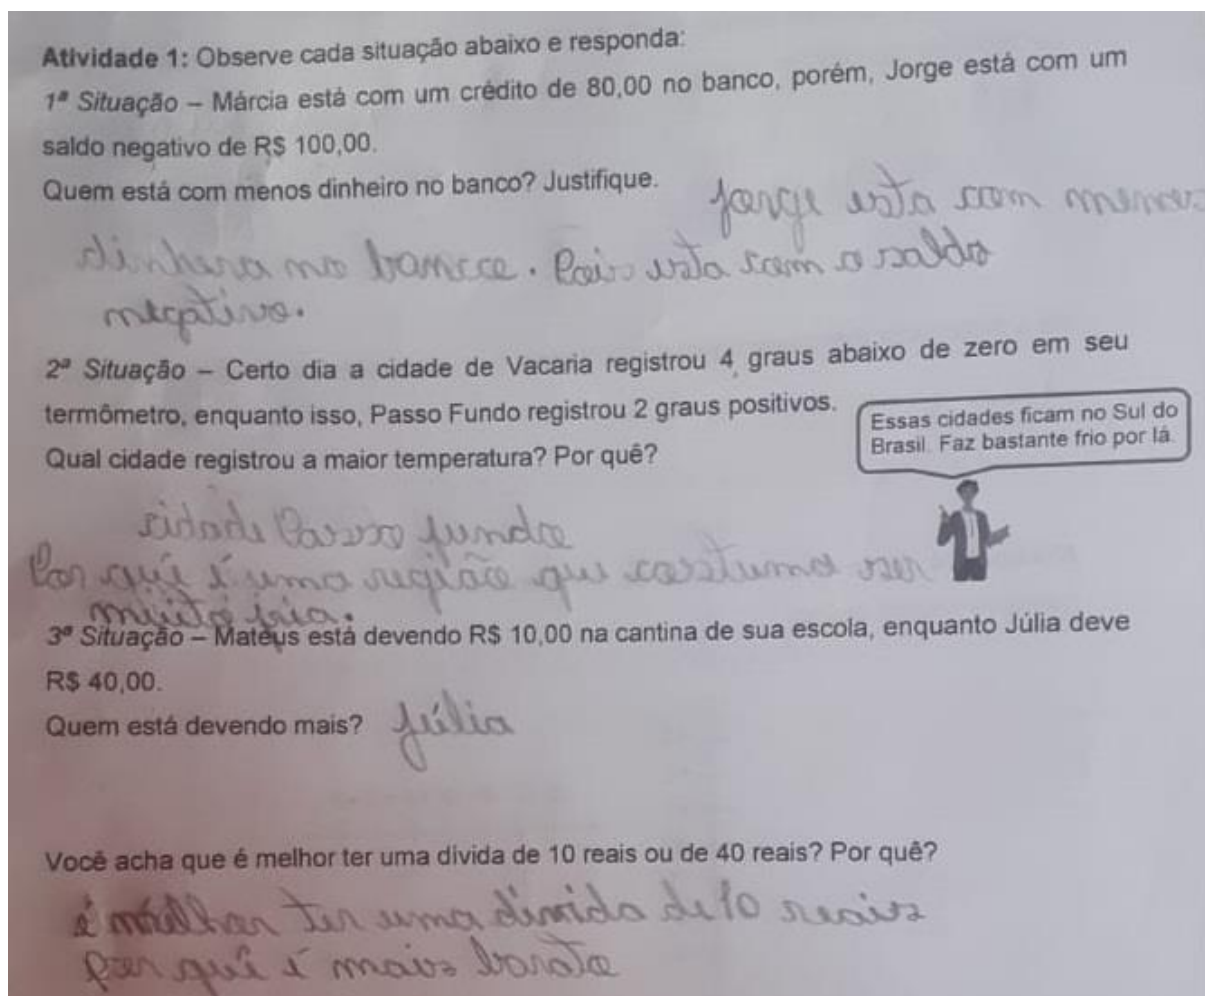 Atividade 1: Observe cada situação abaixo e responda:
1ª Situação – Márcia está com um crédito de 80,00 no banco, porém, Jorge está com um
saldo negativo de R$ 100,00.
Quem está com menos dinheiro no banco? Justifique.
Jorge esta com menos
dinhero no bancce. Pois esta com o saldo
negativo.
2ª Situação – Certo dia a cidade de Vacaria registrou 4 graus abaixo de zero em seu
termômetro, enquanto isso, Passo Fundo registrou 2 graus positivos.
Essas cidades ficam no Sul do
Brasil. Faz bastante frio por lá.
Qual cidade registrou a maior temperatura? Por quê?
cidade Passo fundo
Por quê é uma região que costuma ser
muito fria.
3ª Situação – Mateus está devendo R$ 10,00 na cantina de sua escola, enquanto Júlia deve
R$ 40,00.
Quem está devendo mais? Júlia
Você acha que é melhor ter uma dívida de 10 reais ou de 40 reais? Por quê?
é melhor ter uma divida de 10 reais
por quê é mais barato